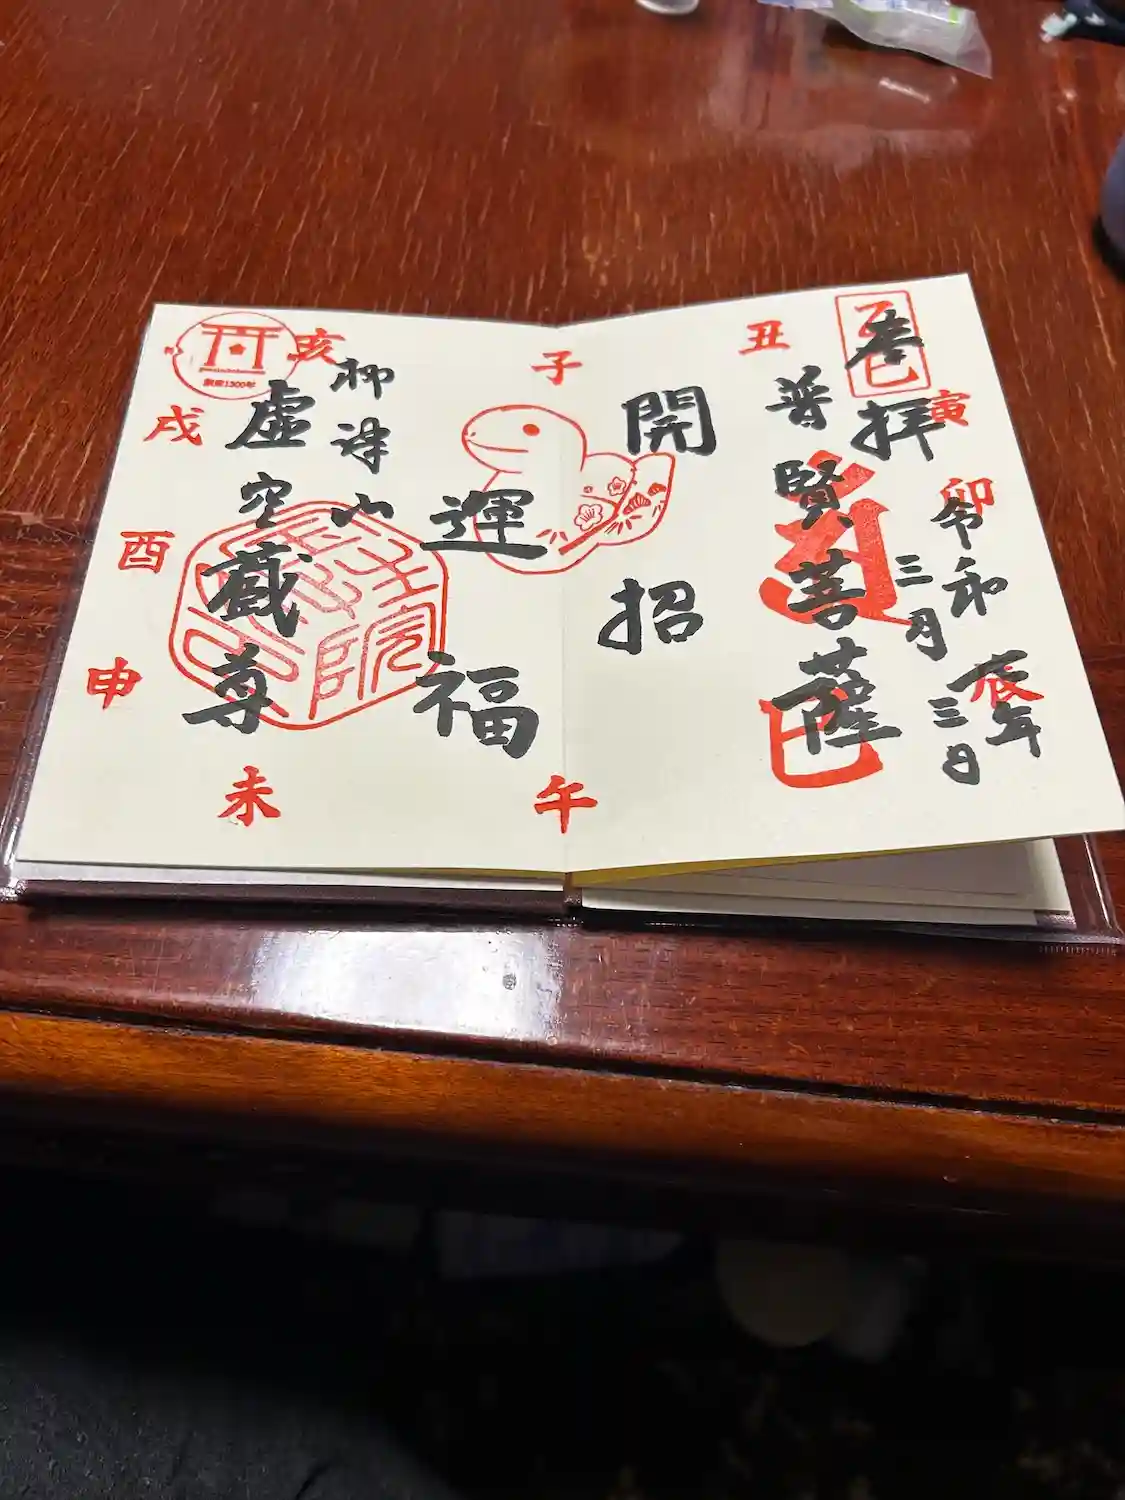 奉拝
乙巳
令和七年
三月三日
普賢菩薩
巳
開運
招福
柳津山
虚空蔵尊
開創1300年
子
丑
寅
卯
辰
午
未
申
酉
戌
亥